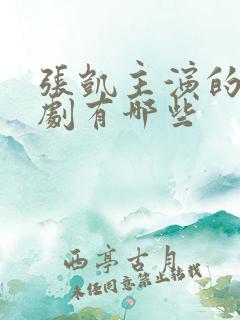 張凱主演的
劇有哪些
西亭古月
未經同意禁止轉載